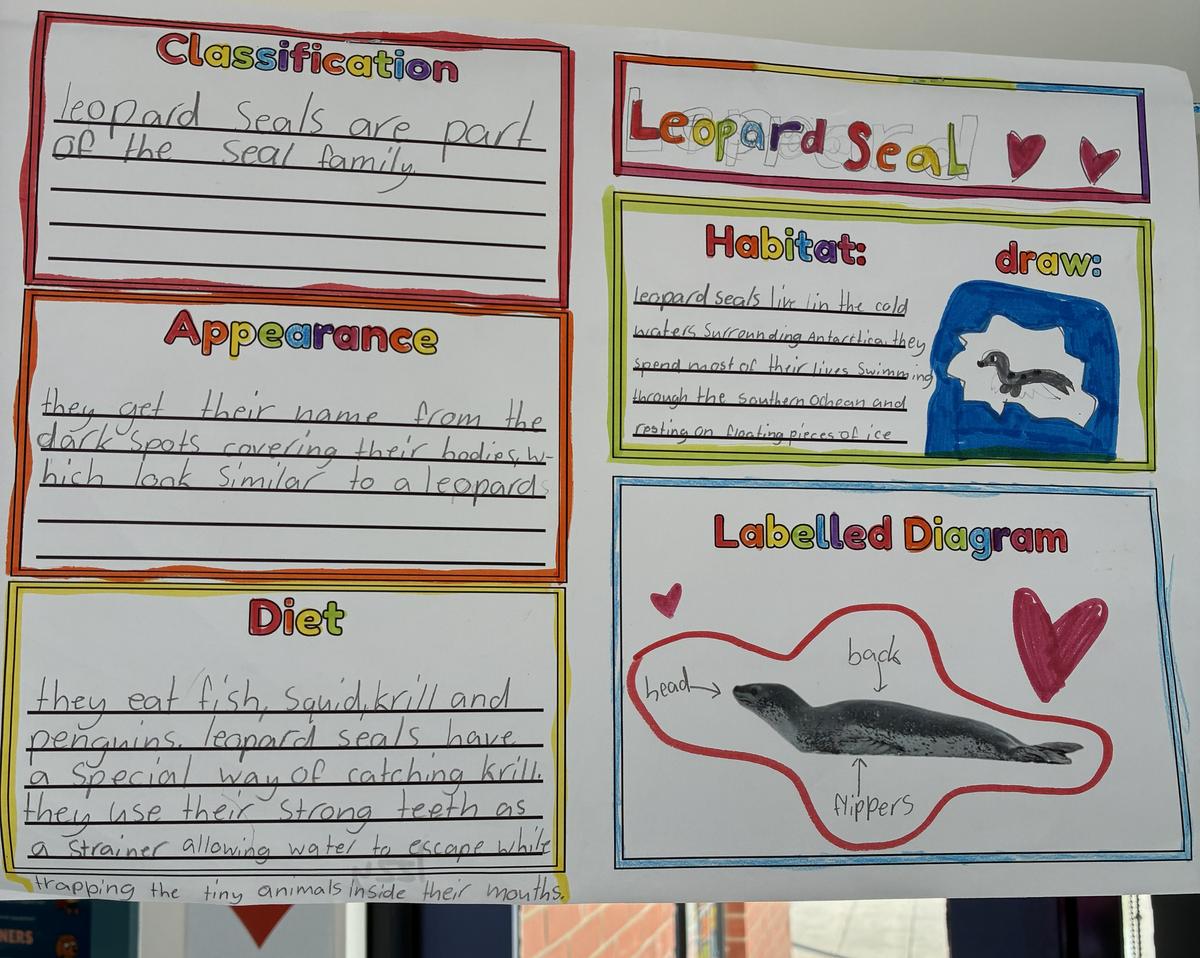 Classification
leopard seals are part
of the seal family.
Appearance
they get their name from the
dark spots covering their bodies, w-
hich look similar to a leopards
Diet
they eat fish, squid, krill and
penguins. leopard seals have
a special way of catching krill.
they use their strong teeth as
a strainer allowing water to escape while
trapping the tiny animals inside their mouths.
Leopard Seal
Habitat:
draw:
leopard seals live in the cold
waters surrounding Antarctica. they
spend most of their lives swimming
through the southern Ochean and
resting on floating pieces of ice
Labelled Diagram
back
head
flippers
NERS